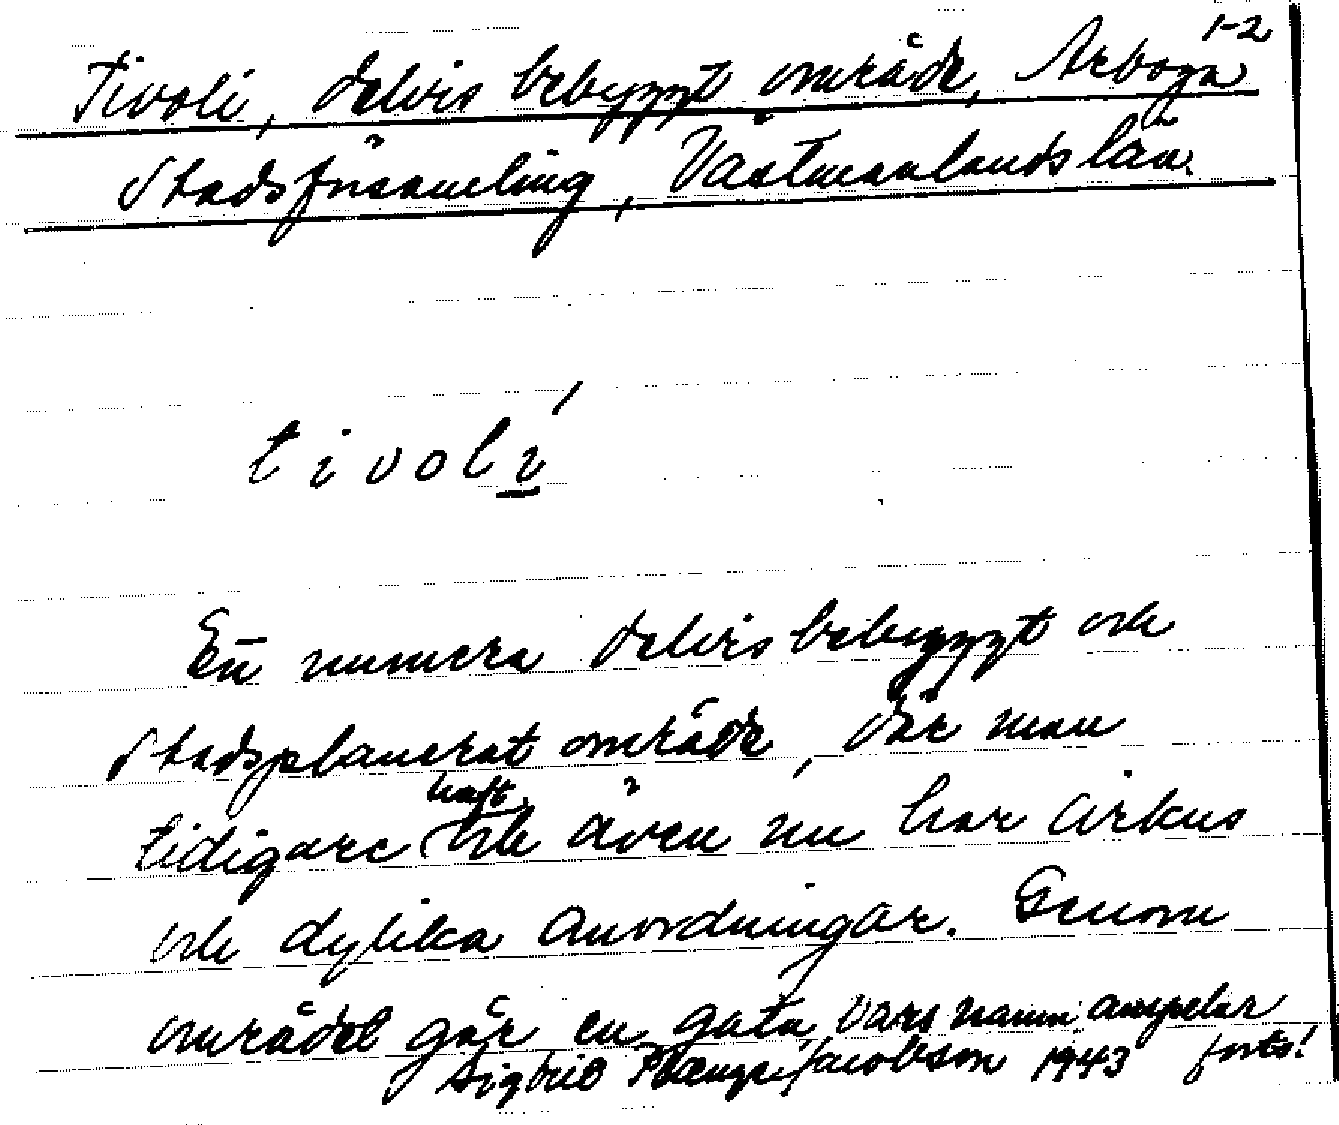 1-2
Tivoli, delvis bebyggt område, Arboga
Stadsförsamling, Västmanlands län.
tivolí
En numera delvis bebyggt och
stadsplanerat område, där man
tidigare haft och även nu har cirkus
och dylika anordningar. Genom
området går en gata, vars namn anspelar
Sigbrit Plænge Jacobson 1943 forts!